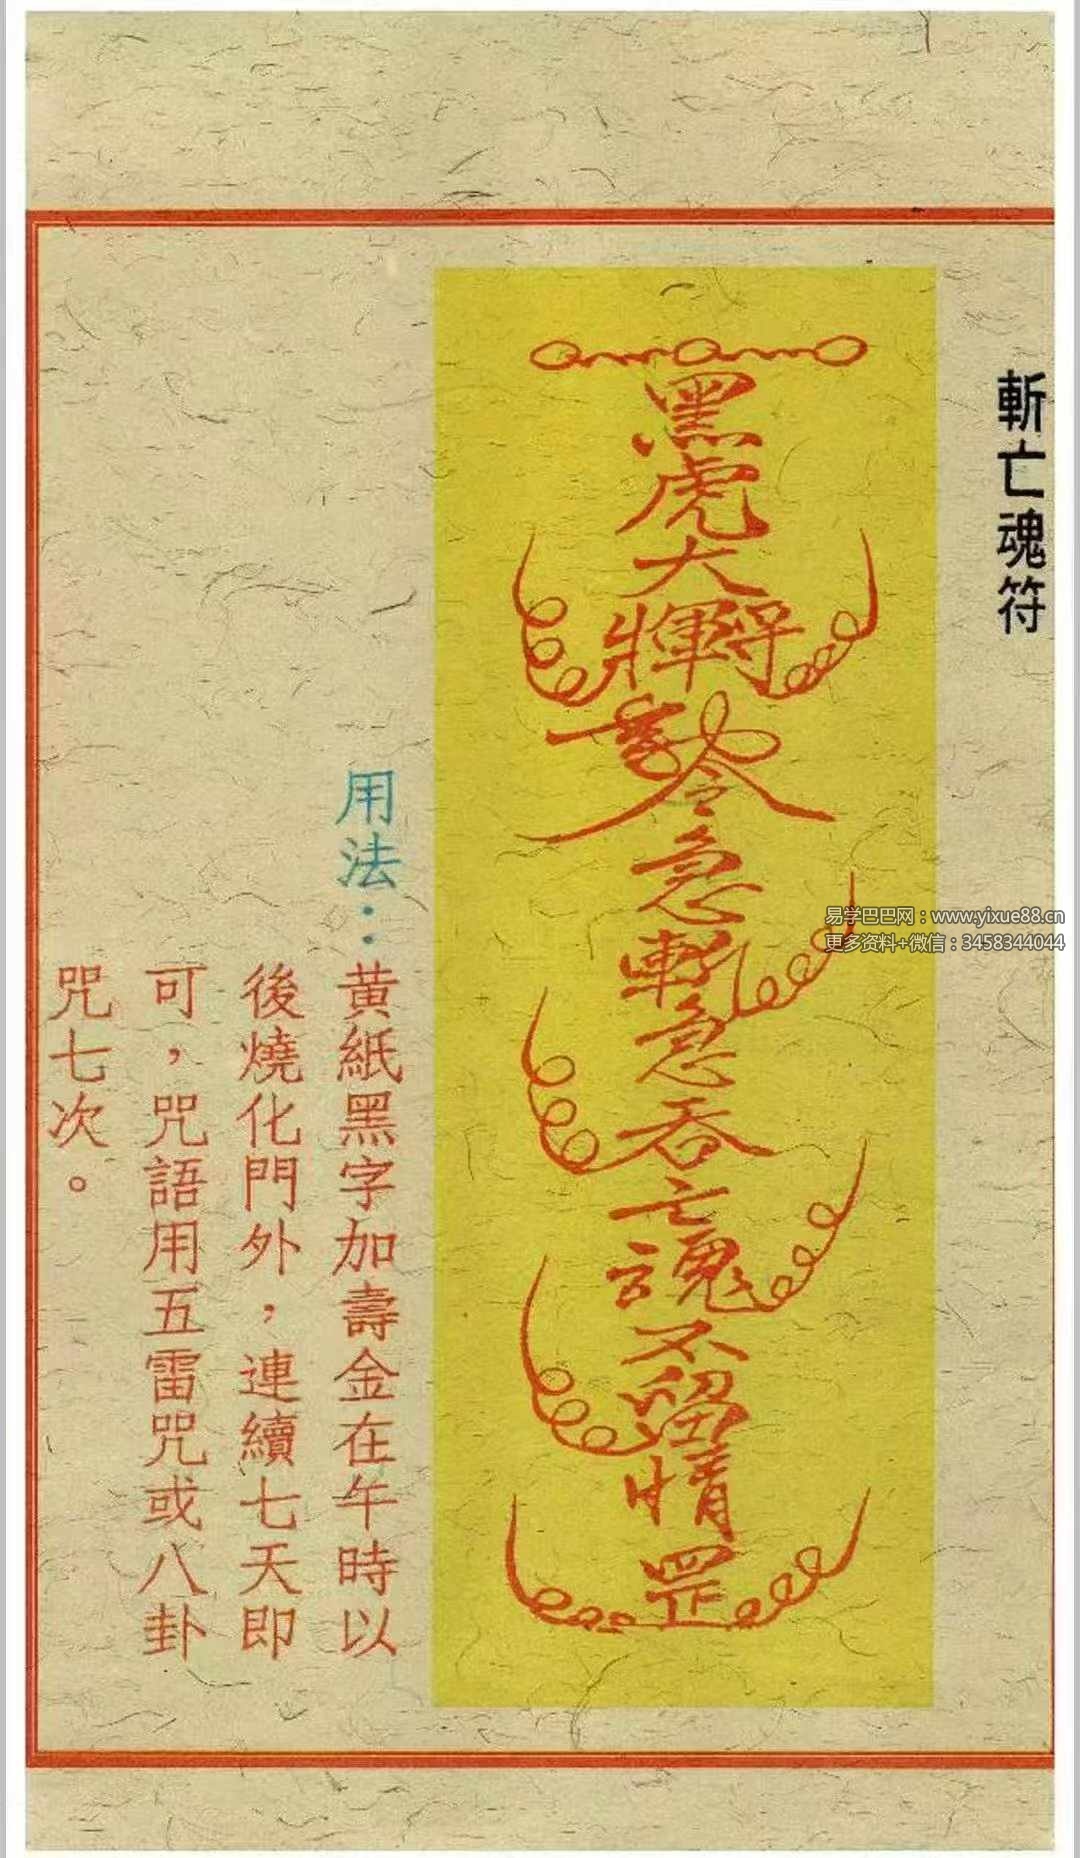 斬亡魂符
黑虎大將軍
令急斬急吞亡魂不留情罡
用法：黃紙黑字加壽金在午時以
後燒化門外，連續七天即
可，咒語用五雷咒或八卦
咒七次。
易学巴巴网：www.yixue88.cn
更多资料+微信：3458344044